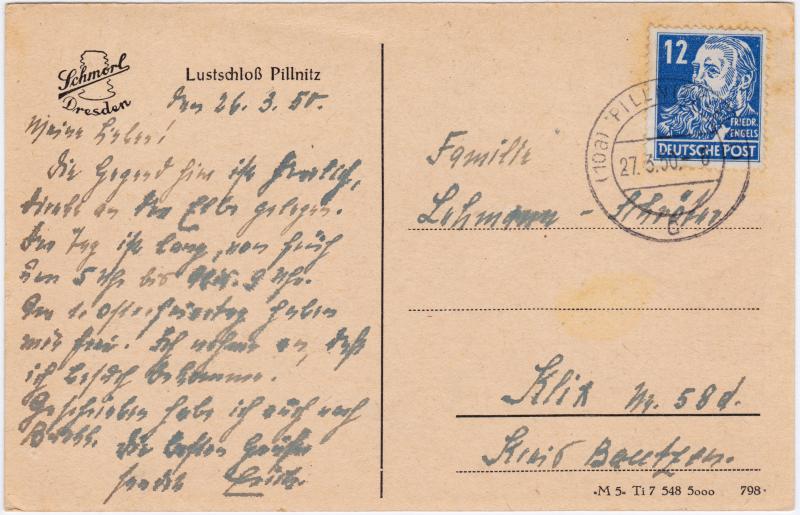 Schmorl
Dresden
Lustschloß Pillnitz
den 26. 3. 50.
Meine Lieben!
Die Gegend hier ist herrlich,
direkt an der Elbe gelegen.
Der Tag ist lang, von früh
um 5 Uhr bis 9 Uhr.
Am 1. Osterfeiertag haben
wir frei. Ich nehme an, daß
ich Besuch bekomme.
Geschrieben habe ich auch nach
Die besten Grüße
sendet
12
FRIEDR.
ENGELS
DEUTSCHE POST
(10a) PILLN
27.3.50.
c
Familie
Lehmann - Schräfer
Klix Nr. 58d.
Kreis Bautzen.
·M 5· Ti 7 548 5000 798·